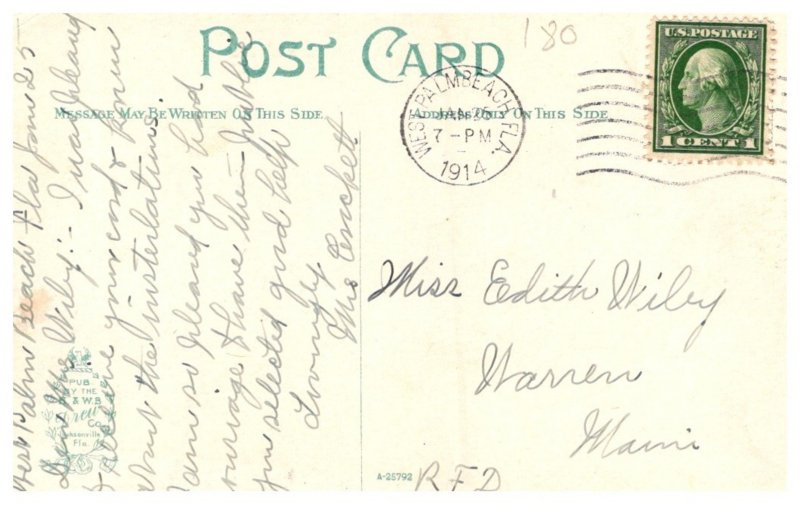 180
POST CARD
MESSAGE MAY BE WRITTEN ON THIS SIDE
ADDRESS ONLY ON THIS SIDE
U.S. POSTAGE
1 CENT 1
WEST PALM BEACH, FLA.
JAN 26
7-PM
1914
West Palm Beach Fla Jan 25
Dear Mrs Wiley:- I was
to receive your card & know
about the installation.
I am so pleased you had
courage to have them
You selected good help
Lovingly
Mrs Crockett
Miss Edith Wiley
Warren
Maine
RFD
PUB
BY THE
H. & W.B.
Drew
Co
Jacksonville
Fla.
A-25792